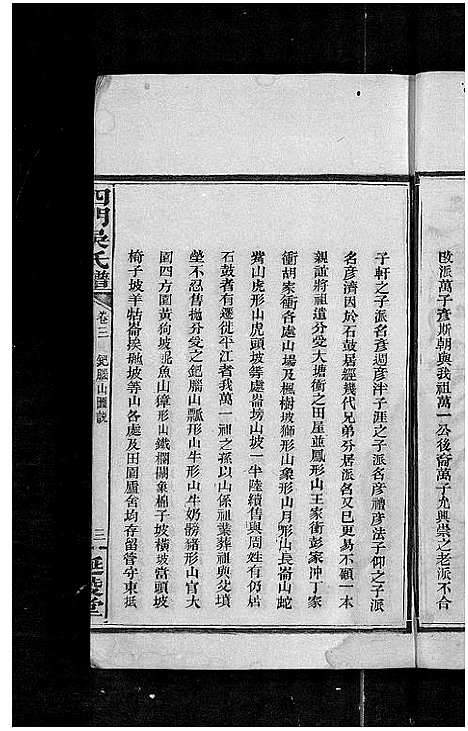 改派萬子彥斯朝與我祖萬一公後裔萬子光興崇之老派不合
子軒之子派名彥週彥泮子涯之子派名彥禮彥法子仰之子派
名彥濟因於石鼓居經幾代兄弟分居派名又已更易不顧一本
親誼將祖遺分受大塘衝之田屋並鳳形山王家衝彭家冲丁家
衝胡家衝各處山場及楓樹坡獅形山象形山月形山長崙山蛇
形山虎形山虎頭坡等處崙塝山坡一半陸續售與周姓有仍居
石鼓者有遷徙平江者我萬一祖之孫以山係祖葉葬祖與父墳
塋不忍售拋分受之鈀腦山瓢形山牛形山牛奶嶺豬形山官大
園四方園黃狗坡坭魚山獐形山鐵欄關象棉子坡橫坡當頭坡
椅子坡羊牯崙挨磡坡等山各處及田園廬舍均存留管守東抵
四門吳氏譜
卷三 鈀腦山圖說
三
延陵堂